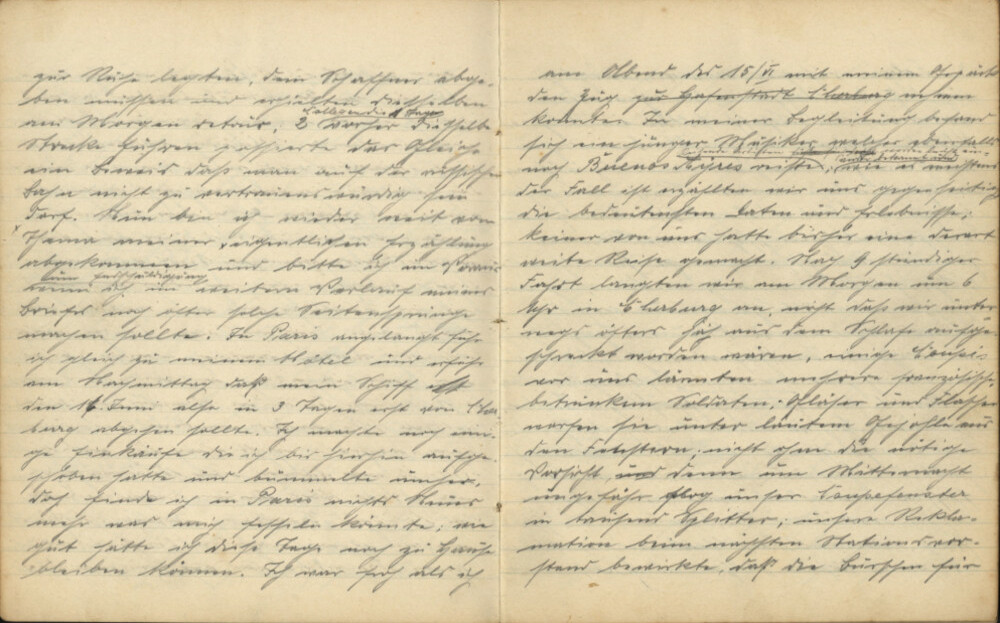 zur Ruhe legten, dem Schaffner abge-
ben mussten und erhielten dieselben
am Morgen retour;
2 Vorher dieselbe
Strecke fuhren passierte das Gleiche
ein Beweis daß man auf der
Bahn nicht zu vertrauenswürdig sein
darf. Nun bin ich wieder weit vom
Thema meiner eigentlichen Erzählung
abgekommen und bitte ich im Voraus
um Entschuldigung
wenn ich im weitern Verlauf meines
Briefes noch öfter solche Seitensprünge
machen sollte. In Paris angelangt fuhr
ich gleich zu meinem Hôtel und erfuhr
am Nachmittag daß mein Schiff erst
den 16 Juni also in 3 Tagen erst von Cher
burg abgehen sollte. Ich machte noch eini-
ge Einkäufe die ich bis hierhin aufge-
schoben hatte und bummelte umher.
Doch finde ich in Paris nichts Neues
mehr was mich fesseln könnte; wie
gut hätte ich diese Tage noch zu Hause
bleiben können. Ich war froh als ich
am Abend des 15/VI mit meinem Gepäck
den Zug zur Hafenstadt Cherburg nehmen
konnte. In meiner Begleitung befand
sich ein junger Musiker welcher ebenfalls
nach Buenos Ayres reiste, wie es meistens
der Fall ist erzählten wir uns gegenseitig
die bedeutensten Daten und Erlebnisse;
keiner von uns hatte bisher eine derart
weite Reise gemacht. Nach 9 stündiger
Fahrt langten wir am Morgen um 6
Uhr in Cherburg an, nicht daß wir unter
wegs öfters jäh aus dem Schlafe aufge
schreckt worden wären, einige Coupé
vor uns lärmten mehrere französische
betrunkene Soldaten; Gläser und Flaschen
warfen sie unter lautem Gejohle aus
den Fenstern; nicht ohne die nötige
Vorsicht, und denn um Mitternacht
ungefähr flog unser Coupefenster
in tausend Splitter; unsere Rekla-
mation beim nächsten Stationsvor-
stand bewirkte, daß die Burschen für